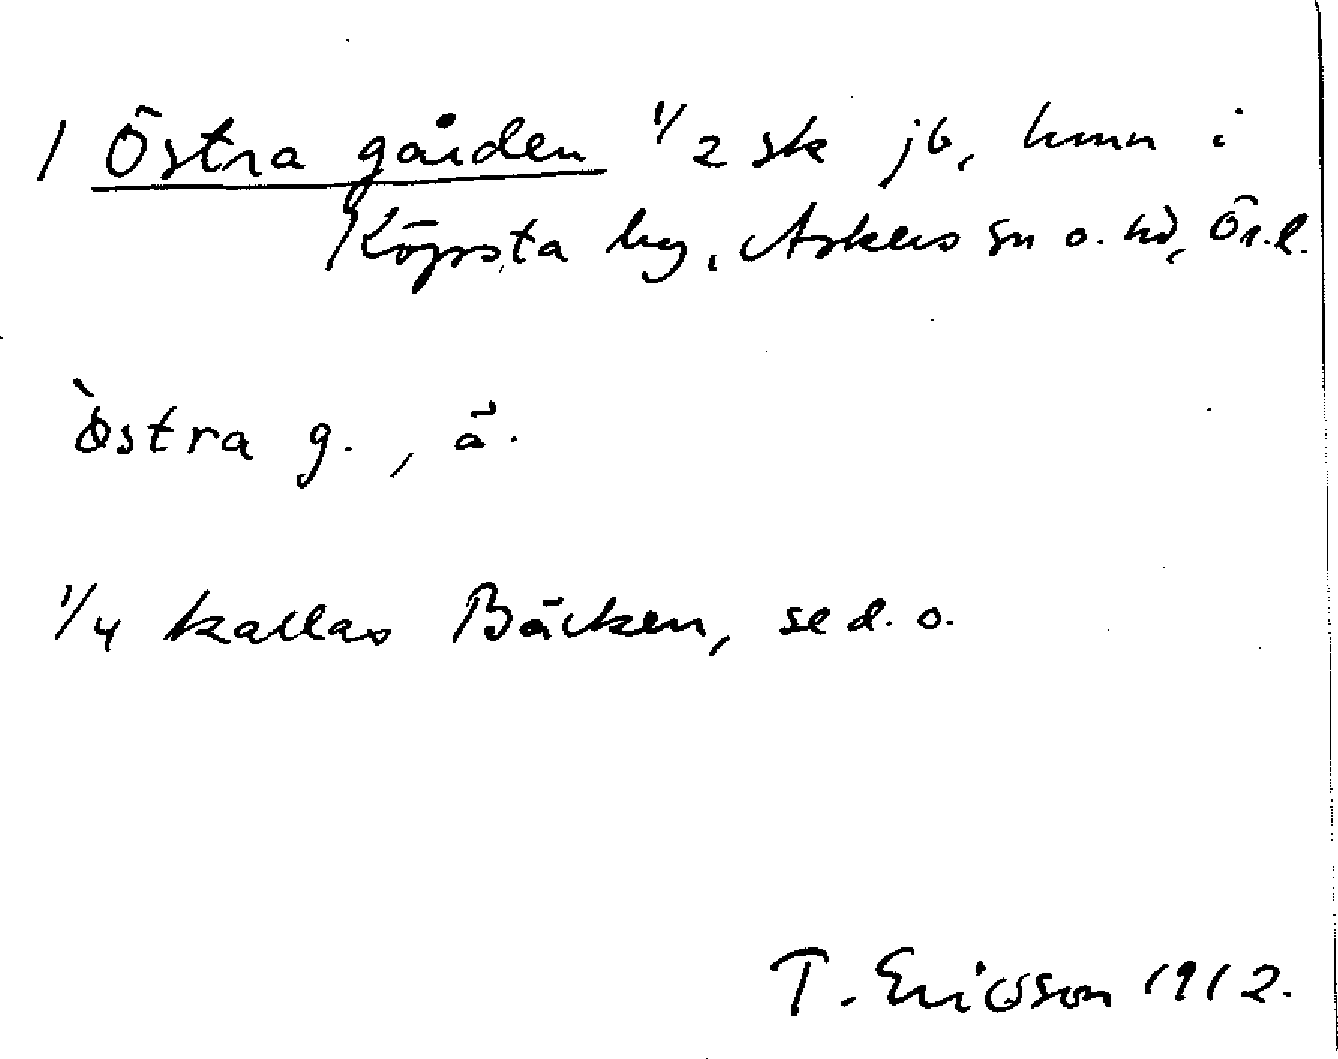 1 Östra gården 1/2 sk jb, hmn i
Köpsta by, Askers sn o. hd, Ör.l.
òstra g., ā.
1/4 kallas Bäcken, se d. o.
T. Ericsson 1912.